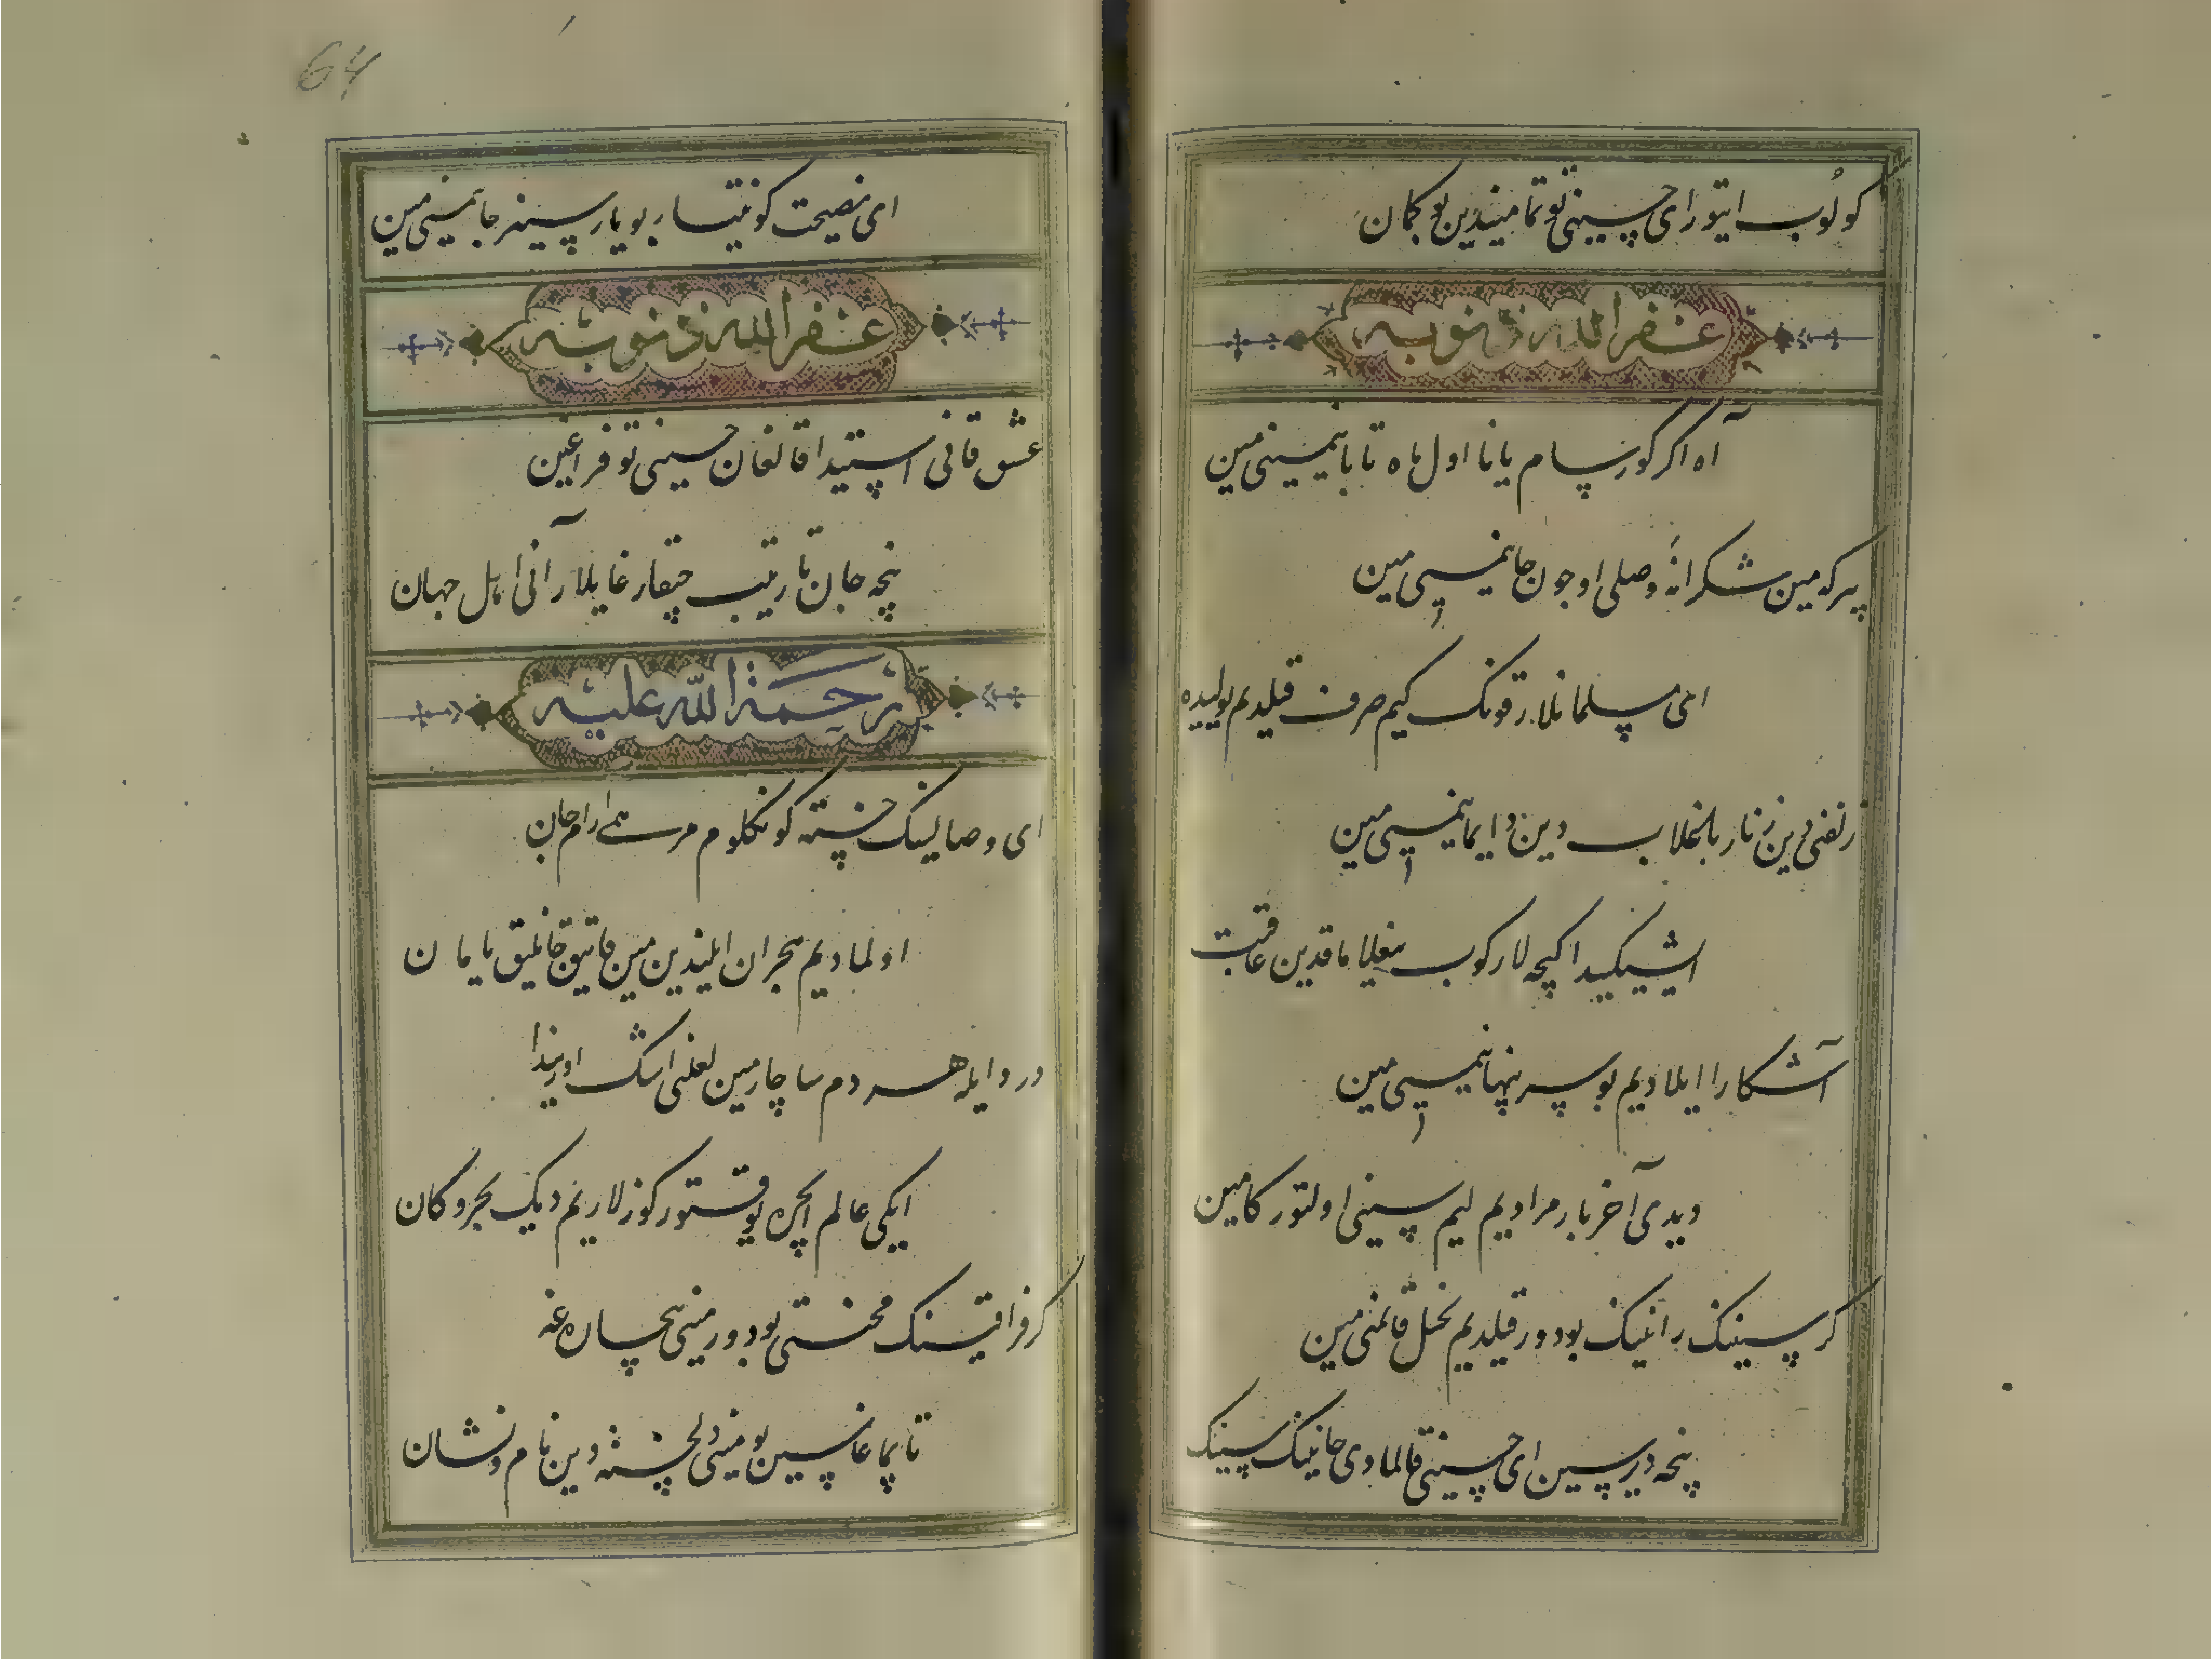 کولوب ایتور ای حسینی تو تمامیندین بو کمان
غفر الله ذنوبه
آه اگر کورسام یانا اول ماه تابانیمنی مین
بیرکه مین شکرانهٔ وصلی اوچون جانیمنی مین
ای مسلمانلار قونک کیم صرف قیلدیم یولیده
زلفی دین زنار باغلاب دین و ایمانیمنی مین
ایشیکیدا کیجه لار کوب ییغلاماقدین عاقبت
آشکارا ایلادیم بو سر پنهانیمنی مین
دیدی آخر بار مرادیم لیم سینی اولتورکامین
کر سینینک رایینک بودور قیلدیم بحل قانمنی مین
نیچه دیرسین ای حسینی قالمادی جانینک سینینک
64
ای نصیحت کونیتسار بو یارسیز جانیمنی مین
غفر الله ذنوبه
عشق قانی استیدا قالغان حسینی تو فراغین
نیچه جان تارتیب حیقارغایلار آنی اهل جهان
رحمة الله علیه
ای وصالینک خسته کونکلوم مرهمی آرام جان
اولمادیم هجران ایلیندین مین قاتیق قانلیق یامان
درد ایله هر دم ساچارمین لعلنی اشک اوریندا
ایکی عالم ایچره یوقتور کوزلاریم دیک بحر و کان
کر فراقینک محنتی بودور مینی بیچاره غه
تاپماغایسین بو مینی دلخسته دین نام و نشان